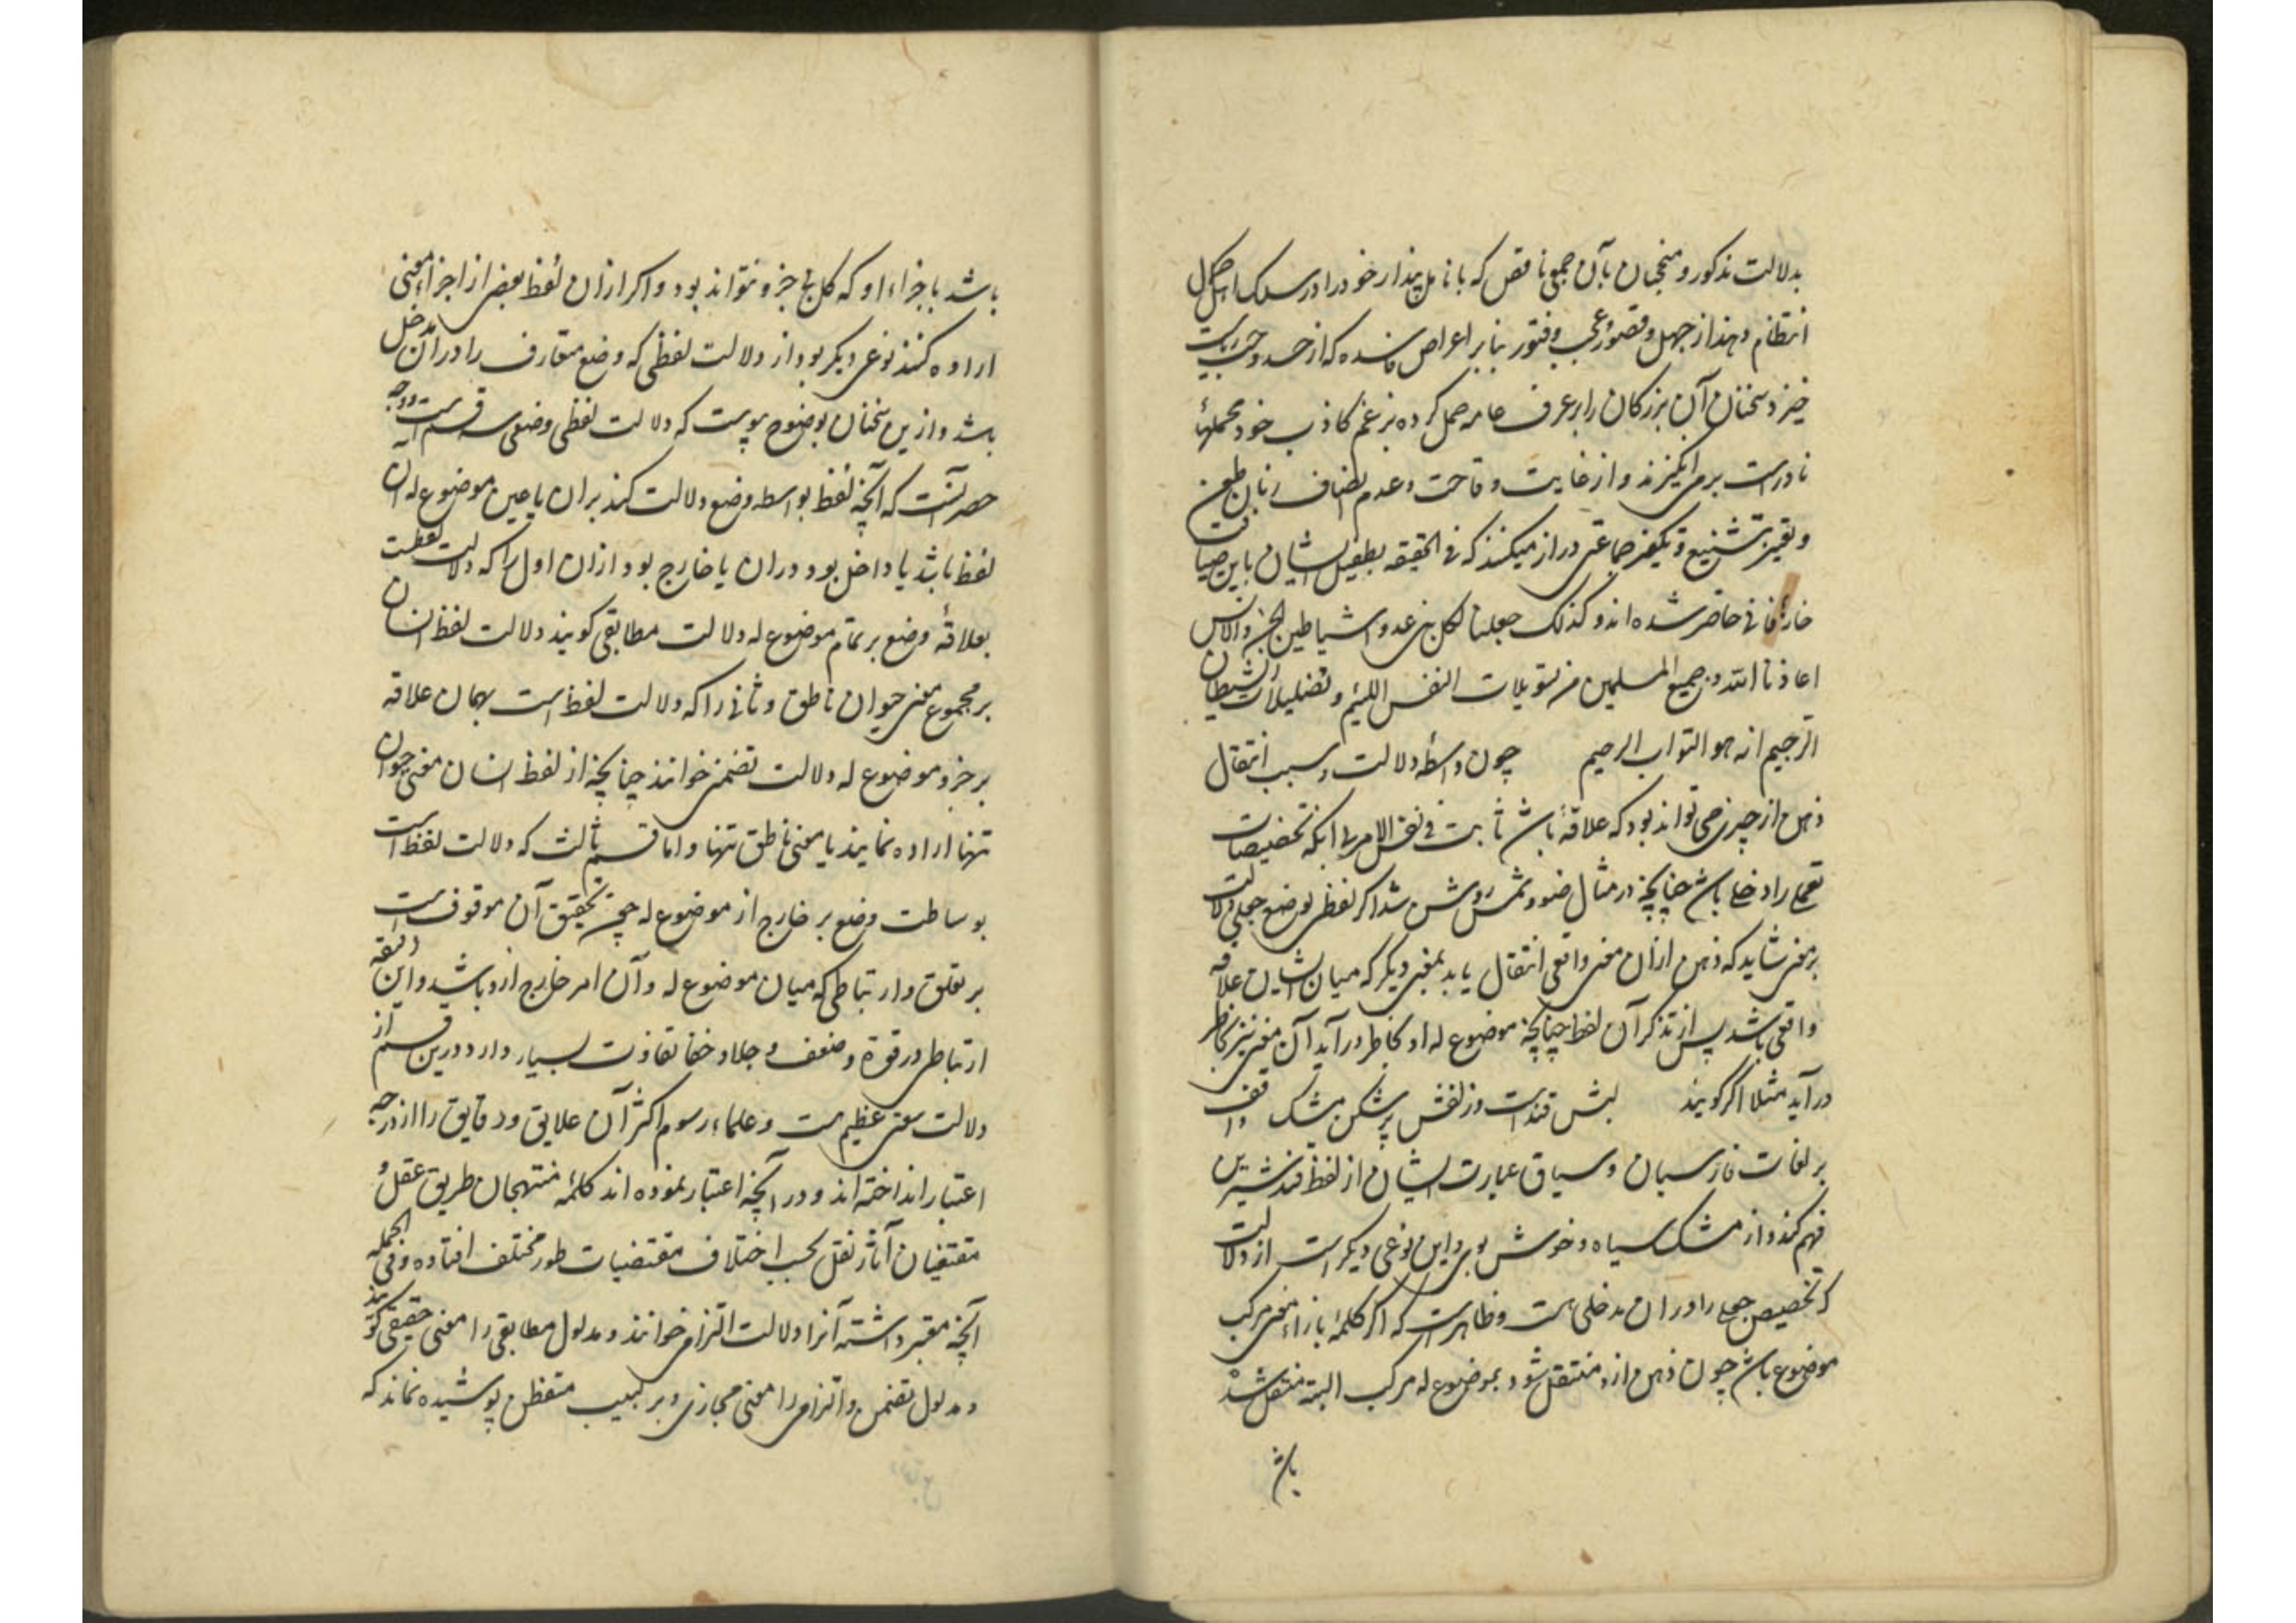 بدلالت مذکور و منجیان بآن جمعی ناقص که بانامل پندار خود را در سلک اهل کمال
انتظام دهند از جهل و قصور و عجب و فتور بنابر اعراض فاسده که از حسد و حب ریاست
خیزد سخنان آن بزرکان را بر عرف عامه حمل کرده بزعم کاذب خود محملهاء
نادرست بر می‌انکیزند و از غایت وقاحت و عدم انصاف زبان طعن
و تشنیع و تکفیر جماعتی دراز میکنند که فی الحقیقه بطفیل ایشان باین ضیافت
حاضر شده اند و کذلک جعلنا لکل نبی عدوا شیاطین الجن و الانس
اعاذنا الله و جمیع المسلمین من تسویلات النفس اللئیم و تضلیلات الشیطان
الرجیم انه هو التواب الرحیم چون واسطه دلالت و سبب انتقال
ذهن از چیزی می تواند بود که علاقه باشد ثابت فی نفس الامر بی آنکه تخصیصات
جعلی را دخلی باشد چنانچه در مثال ضوء و شمس روشن شد اکر لفظی بوضع جعلی دلالت
بر معنی شاید که ذهن ازان معنی واقعی انتقال یابد بمعنی دیکر که میان ایشان علاقه
واقعی باشد پس از تذکر آن لفظ چنانچه موضوع له او بخاطر در آید آن معنی نیز بخاطر
در آید مثلا اکر کویند لبش قندست و زلفش پرشکن مشک واقف
بر لغات فارسیان و سیاق عبارت ایشان از لفظ قند شیرین
فهم کند و از مشک سیاه و خوش بوی و این نوعی دیکر است از دلالت
که تخصیص جعلی را دران مدخلی هست و ظاهرست که اکر کلمهٔ بازاء معنی مرکب
موضوع باشد چون ذهن ازو منتقل شود بموضوع له مرکب البته منتقل شده
باشد
باشد باجزاء او که کل بی جزو نتواند بود و اکر ازان لفظ بعضی از اجزاء معنی
اراده کنند نوعی دیکر بود از دلالت لفظی که وضع متعارف را دران مدخل
باشد و ازین سخنان بوضوح پیوست که دلالت لفظی وضعی سه قسم است و وجه
حصر آنست که آنچه لفظ بواسطه وضع دلالت کند بران یا عین موضوع له آن
لفظ باشد یا داخل بود دران یا خارج بود ازان اول را که دلالت لفظست
بعلاقهٔ وضع بر تمام موضوع له دلالت مطابقی کویند دلالت لفظ انسان
بر مجموع معنی حیوان ناطق و ثانی را که دلالت لفظ است بهمان علاقه
بر جزو موضوع له دلالت تضمنی خوانند چنانچه از لفظ انسان معنی حیوان
تنها اراده نمایند یا معنی ناطق تنها و اما قسم ثالث که دلالت لفظ است
بوساطت وضع بر خارج از موضوع له چون تحقیق آن موقوفست
بر تعلق و ارتباطی که میان موضوع له و آن امر خارج ازو باشد و این علقه
ارتباطی در قوة و ضعف و جلا و خفا تفاوت بسیار دارد درین قسم از
دلالت سعتی عظیم هست و علماء رسوم اکثر آن علایق و دقایق را از درجه
اعتبار انداخته اند و در آنچه اعتبار نموده اند کلمهٔ منتهجان طریق عقل و
مقتفیان آثار نقل بحسب اختلاف مقتضیات طور مختلف افتاده و فی الجمله
آنچه معتبر داشته آنرا دلالت التزام خوانند و مدلول مطابقی را معنی حقیقی کویند
و مدلول تضمن و التزام را معنی مجازی و بر لبیب متفطن پوشیده نماند که